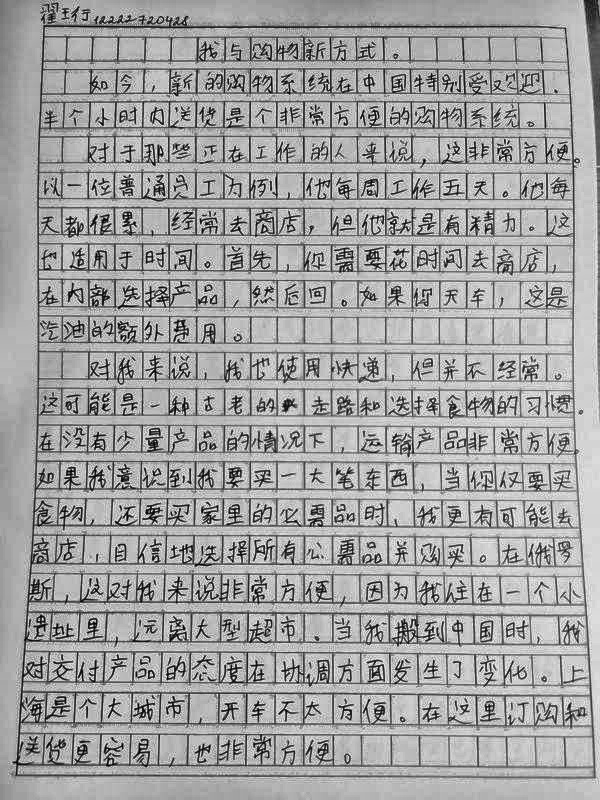 翟王行 12222720428
我与购物新方式。
如今，新的购物系统在中国特别受欢迎.
半个小时内送货是个非常方便的购物系统。
对于那些正在工作的人来说，这非常方便。
以一位普通员工为例，他每周工作五天。他每
天都很累，经常去商店，但他就是有精力。这
也适用于时间。首先，你需要花时间去商店，
在内部选择产品，然后回。如果你天车，这是
汽油的额外费用。
对我来说，我也使用快递，但并不经常。
这可能是一种古老的走路和选择食物的习惯。
在没有少量产品的情况下，运输产品非常方便。
如果我意识到我要买一大笔东西，当你仅要买
食物，还要买家里的公需品时，我更有可能去
商店，自信地选择所有公需品并购买。在俄罗
斯，这对我来说非常方便，因为我住在一个小
遗址里，远离大型超市．当我搬到中国时，我
对交付产品的态度在协调方面发生了变化。上
海是个大城市，开车不太方便。在这里订购和
送货更容易，也非常方便。